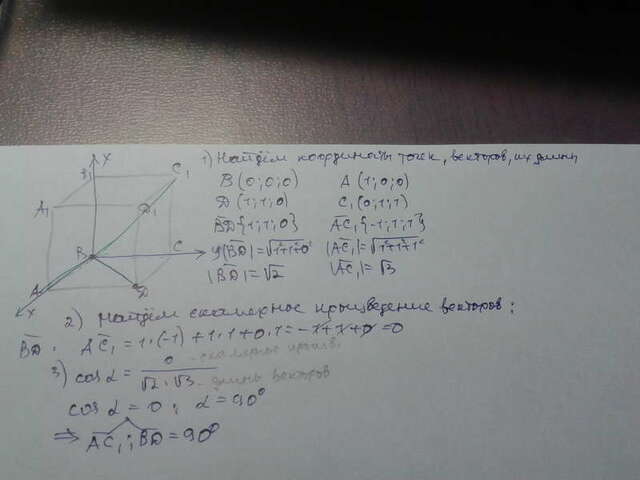 1) Найдём координаты точек, векторов, их длины
B (0; 0; 0) A (1; 0; 0)
D (1; 1; 0) C₁ (0; 1; 1)
BD {1; 1; 0} AC₁ {-1; 1; 1}
|BD| = √1²+1²+0² |AC₁| = √1²+1²+1²
|BD| = √2 |AC₁| = √3
x
B₁
C₁
A₁
D₁
B
C
y
A
D
x
2) Найдём скалярное произведение векторов:
BD · AC₁ = 1·(-1) + 1·1 + 0·1 = -1+1+0 = 0
3) cos α = 0 / √2 · √3 - скалярное произв. - длины векторов
cos α = 0; α = 90°
⇒ AC₁; BD = 90°